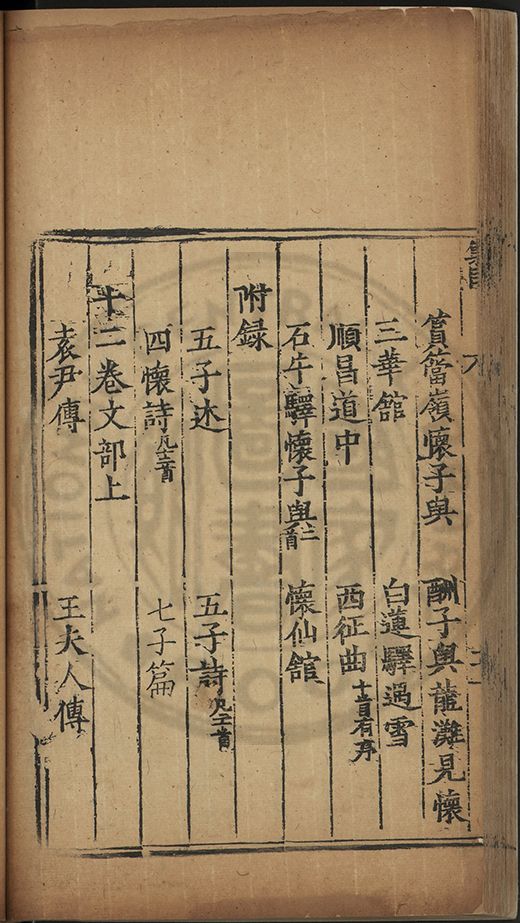 篔簹嶺懷子與　酬子與龍灘見懷
三華館　白蓮驛遇雪
順昌道中　西征曲
石牛驛懷子與二首　懷仙館
附録
五子述　五子詩
四懷詩　七子篇
十二卷文部上
袁尹傳　王夫人傳